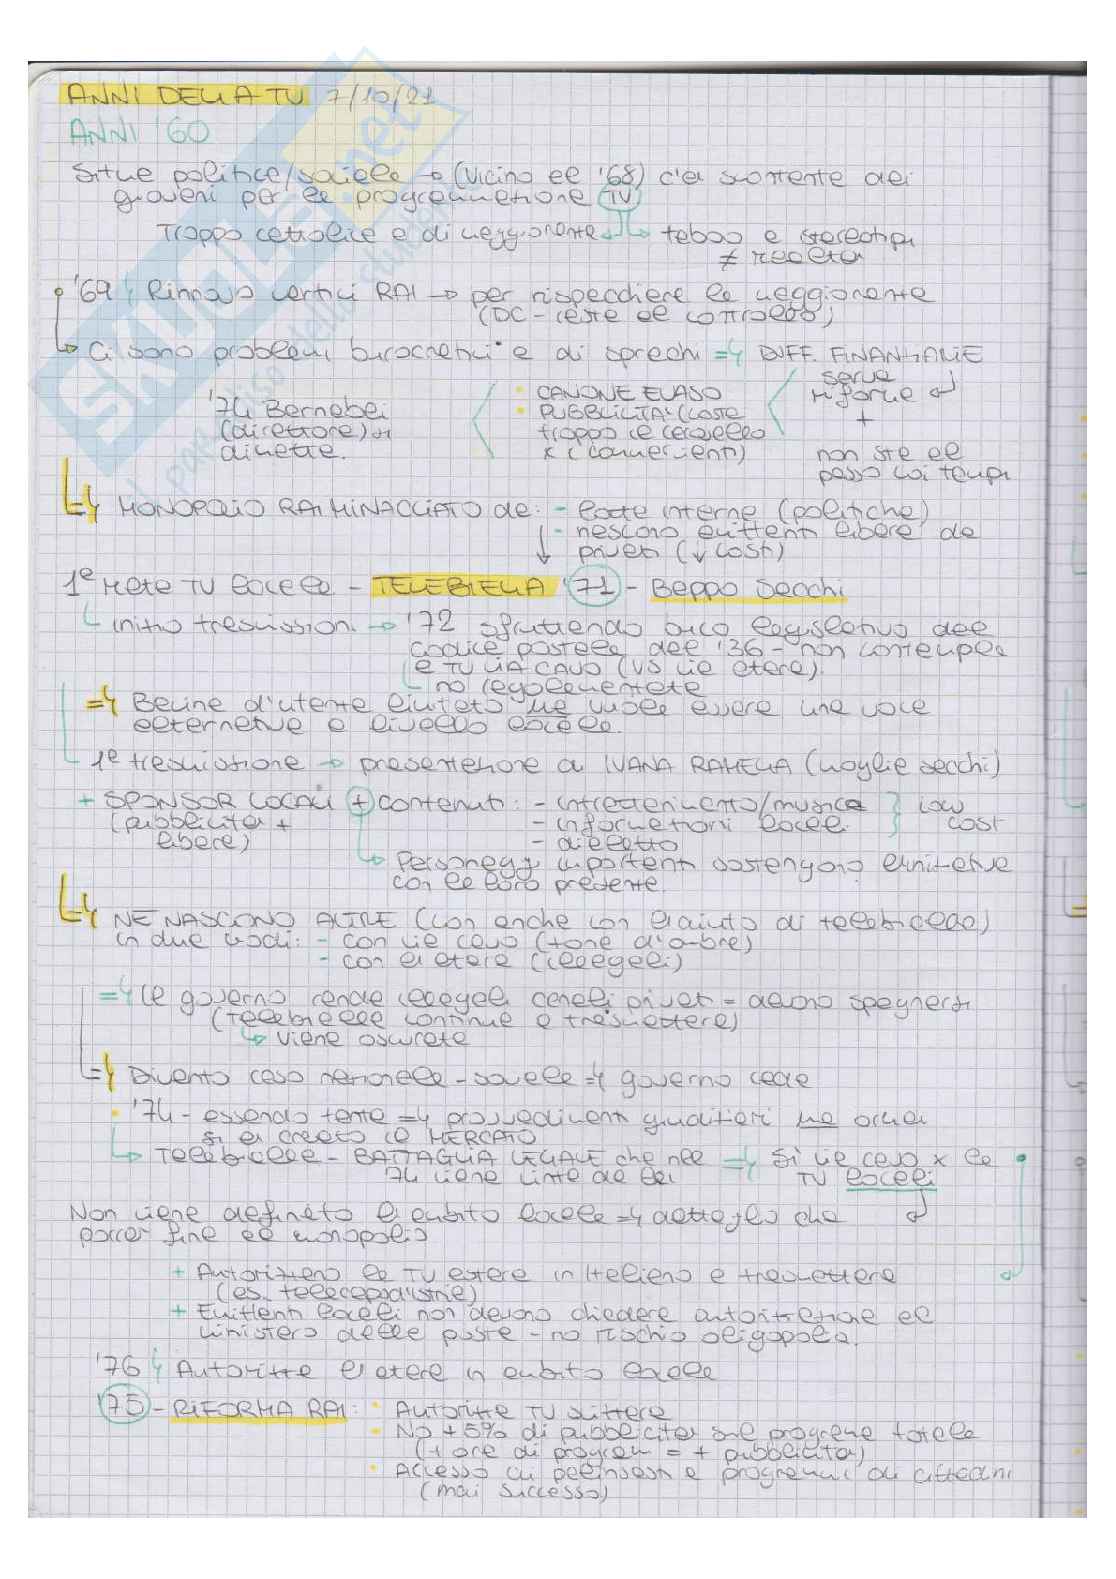 ANNI DELLA TV 7/10/21
ANNI '60
Situa politica/sociale → (Vicino al '68) c'è scontento dei
giovani per la programmazione TV
Troppo cattolica e di maggioranza tabao e stereotipi
≠ realtà
'69 Rinnovo vertici RAI → per rispecchiare la maggioranza
(DC - resta al controllo)
Ci sono problemi burocratici e di sprechi => DIFF. FINANZIARIE
'74 Bernabei
(direttore) si
dimette.
• CANONE EVASO
• PUBBLICITÀ (costa
troppo il carosello
x i commercianti)
serve
riforma
+
non sta al
passo coi tempi
=> MONOPOLIO RAI MINACCIATO da: - lotte interne (politiche)
- nascono emittenti libere da
privati (↓ costi)
1ª rete TV locale - TELEBIELLA '71 - Beppo Sacchi
Inizio trasmissioni → '72 sfruttando buco legislativo del
codice postale del '36 - non contempla
la TV via cavo (vs via etere).
no regolamentata
=> Bacino d'utenza limitato ma vuole essere una voce
alternativa a livello locale.
1ª trasmissione → presentazione di IVANA RAMELLA (moglie Sacchi)
+ SPONSOR LOCALI + contenuti: - intrattenimento/musica
(pubblicità + - informazioni locali
libera) - dialetto
low
cost
Personaggi importanti sostengono iniziativa
con la loro presenza.
NE NASCONO ALTRE (con anche con l'aiuto di telebiella)
in due modi: - con via cavo (zone d'ombra)
- con l'etere (illegali)
=> Il governo rende illegali canali privati = devono spegnersi
(telebiella continua a trasmettere)
viene oscurata
=> Diventa caso nazionale - => governo cade
• '74 - essendo tante => provvedimenti giudiziari ma ormai
si è creato il MERCATO
Telebiella - BATTAGLIA LEGALE che nel => Sì via cavo x le
74 viene vinta da lei TV locali
Non viene definito l'ambito locale => dettaglio che
porrà fine al monopolio
+ Autorizzano le TV estere in italiano a trasmettere
(es. telecapodistria)
+ Emittenti locali non devono chiedere autorizzazione al
ministero delle poste - no rischio oligopolio.
'76 Autorizza l'etere in ambito locale
'75 - RIFORMA RAI: • Autorizza TV
• No + 5% di pubblicità sul programma totale
(+ ore di program = + pubblicità)
• Accesso ai palinsesti a programmi di cittadini
(mai successo)
SKUOLA.net